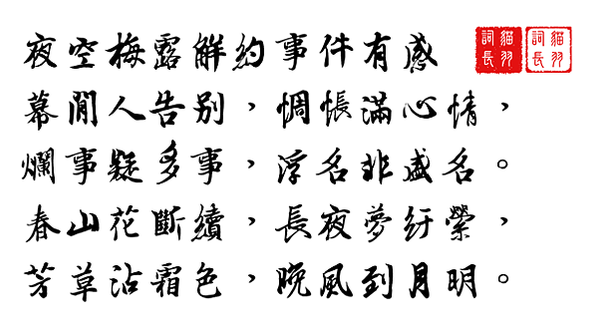 夜空梅露解約事件有感
幕閒人告別，惆悵滿心情，
爛事疑多事，浮名非盛名。
春山花斷續，長夜夢紆縈，
芳草沾霜色，晚風到月明。
貓羽詞長
貓羽詞長